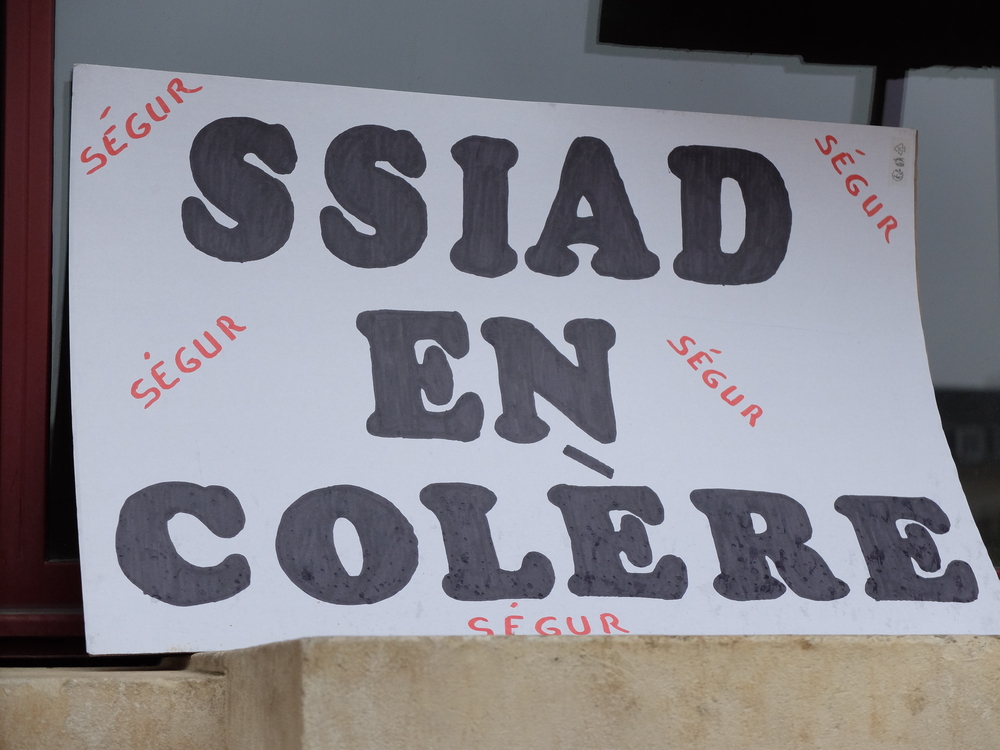 SÉGUR
SÉGUR
SSIAD
SÉGUR
SÉGUR
EN
COLÈRE
SÉGUR